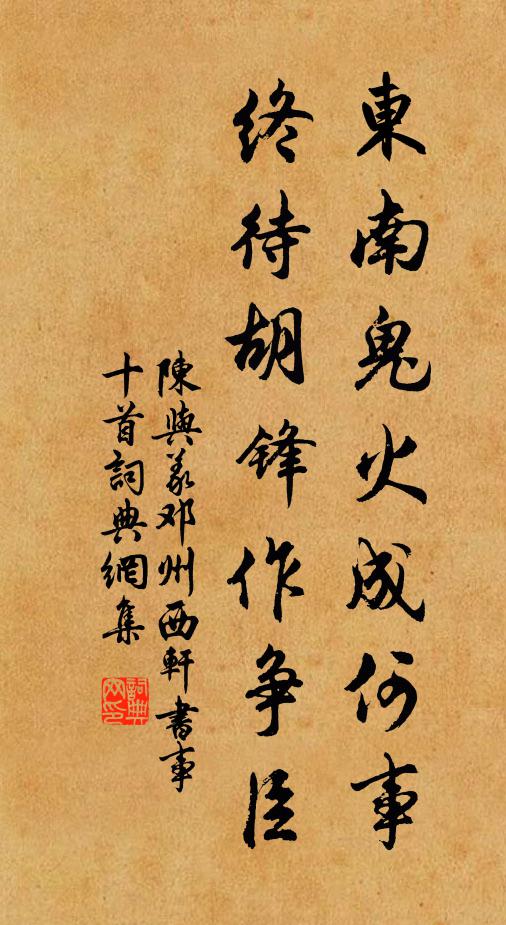 東南鬼火成何事
終待胡锋作争臣
陳與義邓州西軒書事
十首詞典網集
詞典
网印